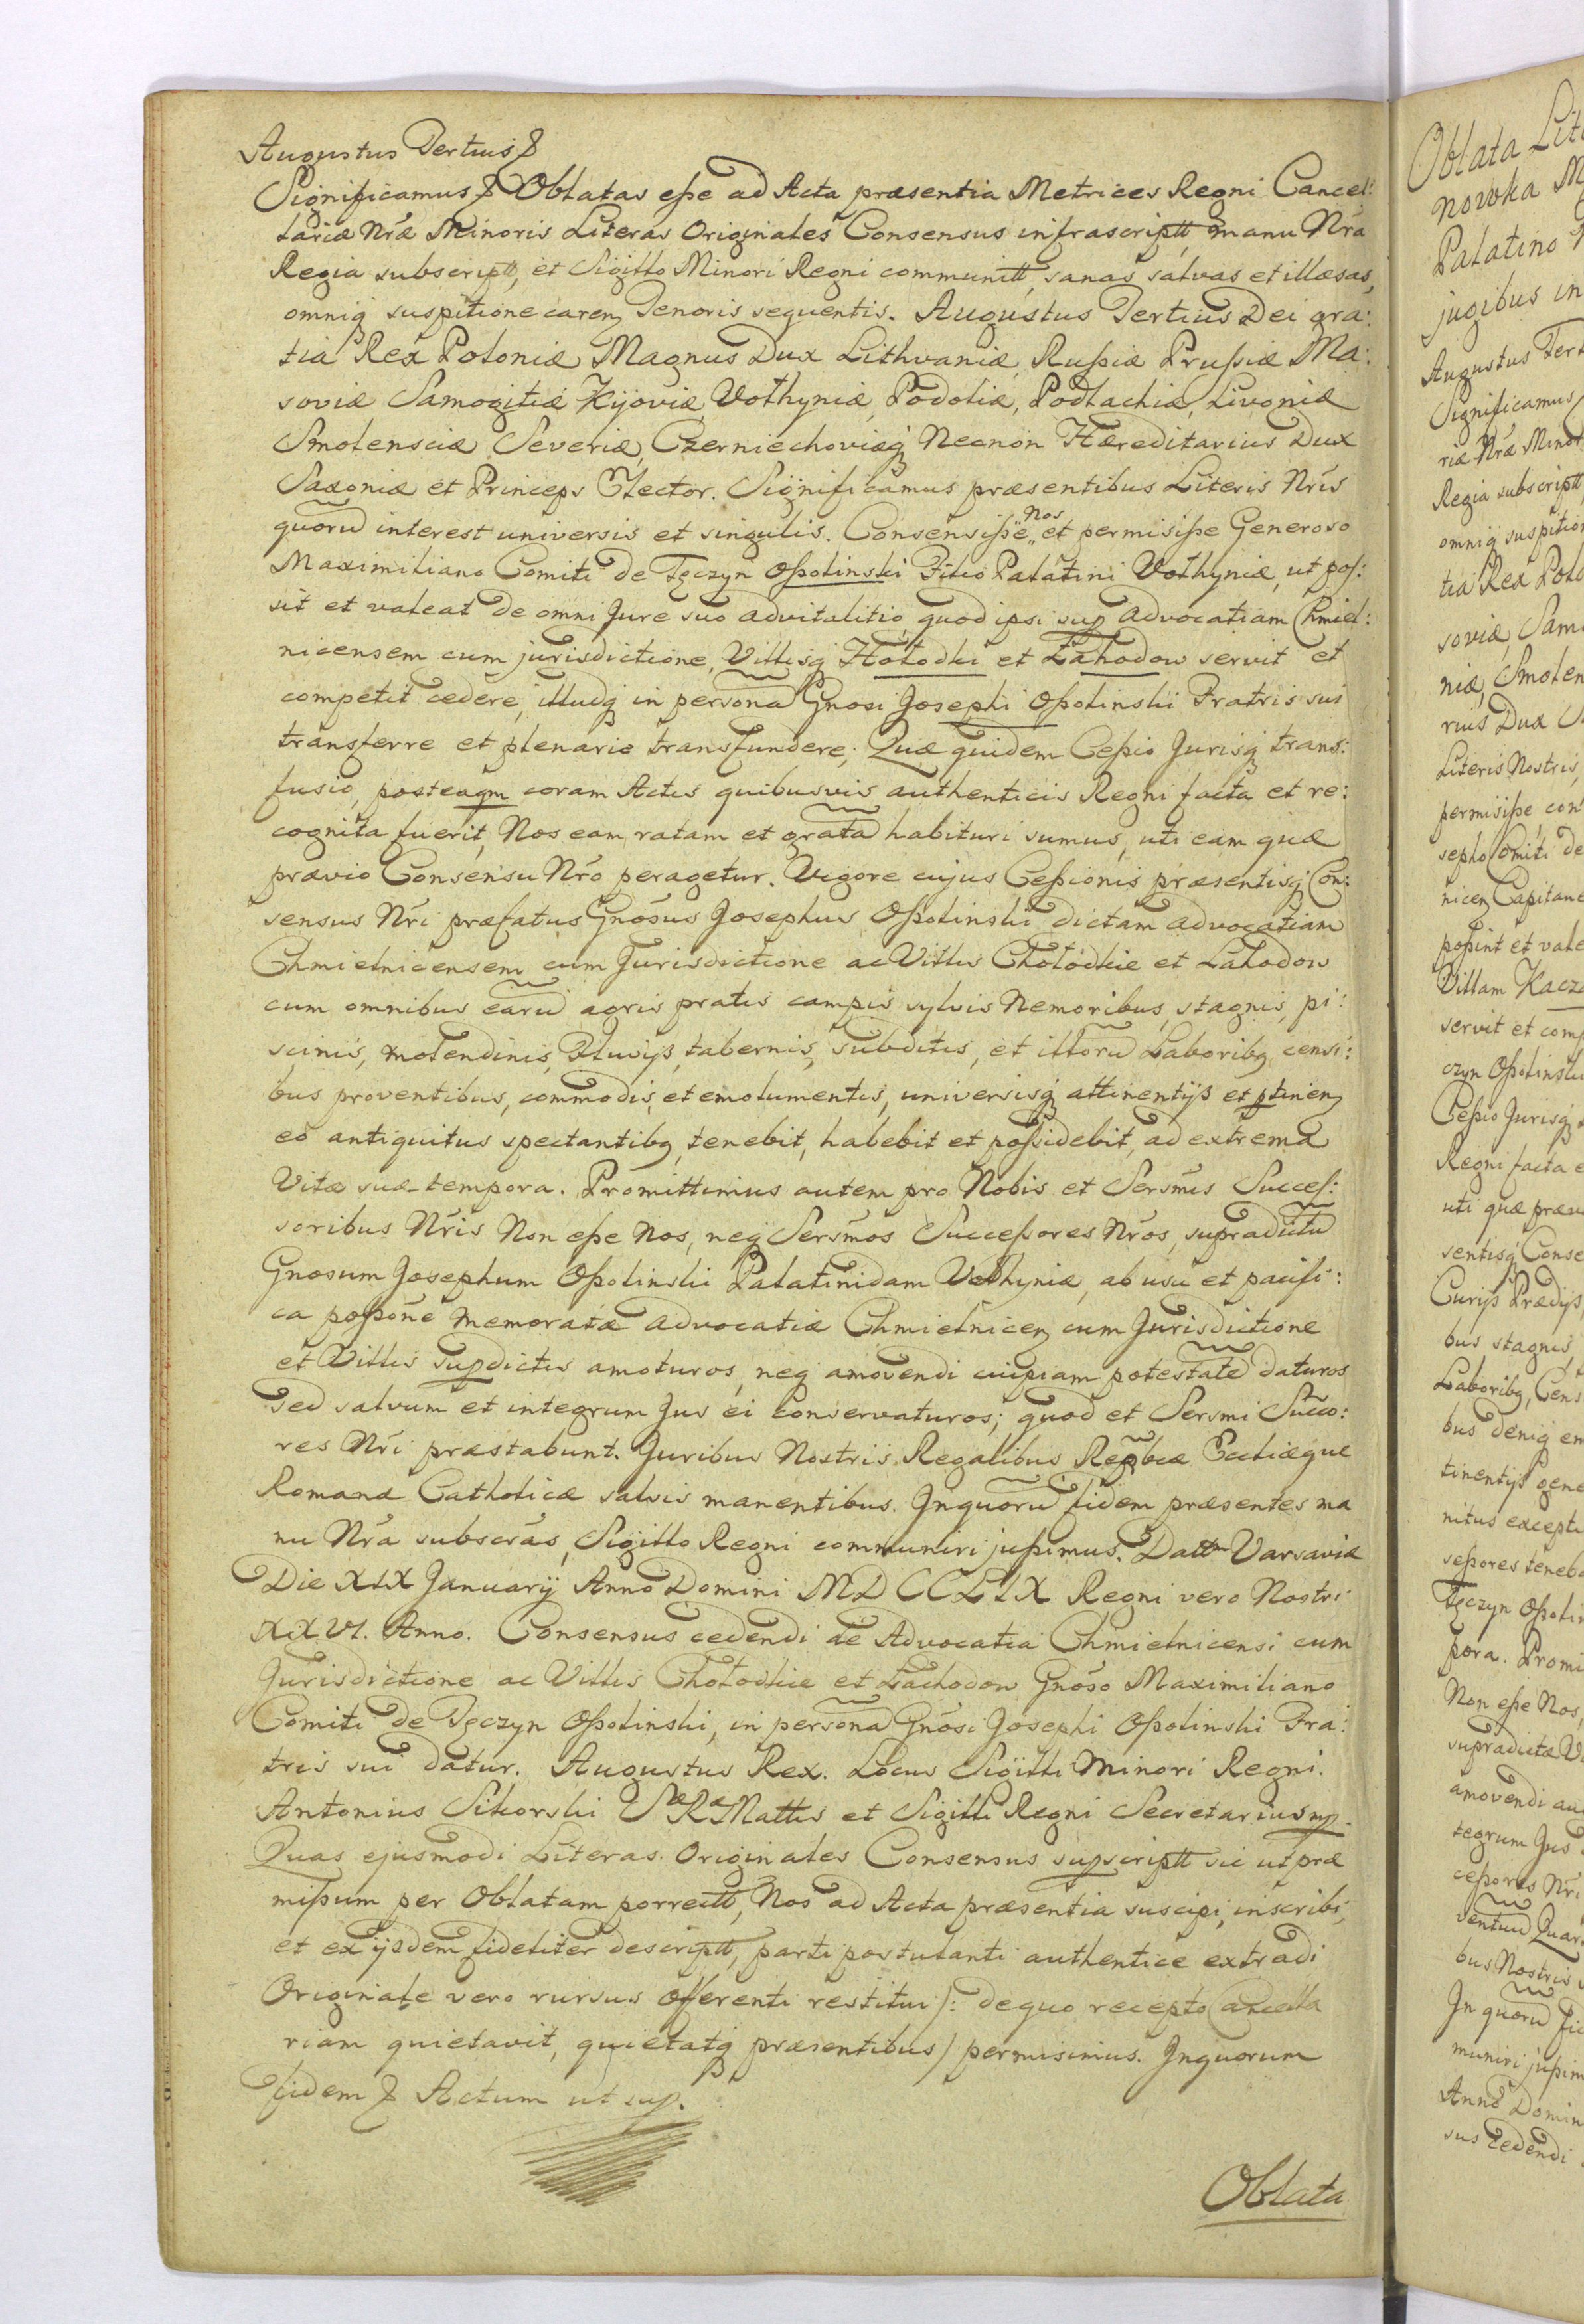 Augustus Tertius &
Significamus & Oblatas esse ad Acta præsentia Metrices Regni Cancel:
lariæ Nræ Minoris Literas Originales Consensus infrascriptt, manu Nra
Regia subscriptt, et Sigillo Minori Regni communitt, sanas salvas et illæsas,
omniq suspitione caren Tenoris sequentis. Augustus Tertius Dei gra:
tia Rex Poloniæ Magnus Dux Lithvaniæ, Russiæ Prussiæ Ma:
soviæ Samogitiæ Kijoviæ, Volhyniæ, Podoliæ, Podlachiæ, Livoniæ
Smolensciæ Severiæ, Czerniechoviæq Necnon Hæreditarius Dux
Saxoniæ et Princeps Elector. Significamus præsentibus Literis Nris
quorũ interest universis et singulis. Consensisse Nos et permisisse Generoso
Maximiliano Comiti de Tęczyn Ossolinski Filio Palatini Volhyniæ, ut pos:
sit et valeat de omni Jure suo advitalitio quod ipsi sup Advocatiam Chmiel:
nicensem cum jurisdictione, Villisq Hołodki et Łahodow servit et
competit cedere, illudq in personã Gnosi Josephi Ossolinski Fratris sui
transferre et plenarie transfundere; Quæ quidem Cessio Jurisq trans:
fusio, posteaqm coram Actis quibusvis authenticis Regni facta et re:
cognita fuerit, Nos eam, ratam et gratã habituri sumus, uti eam quæ
prævio Consensu Nro peragetur. Vigore cujus Cessionis præsentisq Con:
sensus Nri præfatus Gnosus Josephus Ossolinski dictam Advocatiam
Chmielnicensem cum Jurisdictione ac Villis Chołodkie et Łahodow
cum omnibus earũ agris pratis campis sylvis Nemoribus, stagnis, pi:
scinis, molendinis, Fluvijs, tabernis, subditis, et illorũ Laboribq censi:
bus proventibus, commodis, et emolumentis, universisq attinentijs et ptinen
eo antiquitus spectantibq, tenebit, habebit et possidebit, ad extrema
Vitæ suæ tempora. Promittimus autem pro Nobis et Sersmis Succes:
soribus Nris Non esse Nos, neq Sersmos Successores Nros, supradictũ
Gnosum Josephum Ossolinski Palatinidam Volhyniæ, ab usu et pacifi:
ca possone memoratæ Advocatiæ Chmielnicen cum Jurisdictione
et Villis supdictis amoturos, neq amovendi cuipiam potestatẽ daturos
sed salvum et integrum Jus ei conservaturos; quod et Sersmi Succo:
res Nri præstabunt. Juribus Nostris Regalibus Reipbcæ Ecclæque
Romanæ Catholicæ salvis manentibus. Inquorũ fidem præsentes ma
nu Nra subscras, Sigillo Regni communiri jussimus. Dattm Varsaviæ
Die XIX Januarij Anno Domini MDCCLIX Regni vero Nostri
XXVI. Anno. Consensus cedendi de Advocatia Chmielnicensi cum
Jurisdictione ac Villis Chołodkie et Łachodow Gnoso Maximiliano
Comiti de Tęczyn Ossolinski, in personã Gnosi Josephi Ossolinski Fra:
tris sui datur. Augustus Rex. Locus Sigilli Minori Regni.
Antonius Sikorski SæRæMattis et Sigilli Regni Secretarius mp.
Quas ejusmodi Literas Originales Consensus supscriptt sic ut præ
missum per Oblatam porrectt, Nos ad Acta præsentia suscipi, inscribi,
et ex ijsdem fideliter descriptt, parti postulanti authentice extradi
Originale vero rursus offerenti restitui /: dequo recepto Cancella
riam quietavit, quietatq præsentibus / permisimus. Inquorum
fidem & Actum ut sup.
Oblata
Oblata Lit
nowka M
Palatino
jugibus in
Augustus Tert
Significamus
riæ Nræ Minor
Regia subscriptt
omniq suspition
tia Rex Polo
soviæ, Sam
niæ, Smolen
rius Dux
Literis Nostris
permisisse, con
sepho Comiti de
nicen Capitane
possint et vale
Villam Kacz
servit et comp
czyn Ossolinsk
Cessio Jurisq
Regni facta e
uti quæ præv
sentisq Conse
Curijs Prædijs
bus stagnis,
Laboribq, Cens
bus deniq em
tinentijs gene
nitus except
sessores teneb
Tęczyn Ossolin
pora. Promi
Non esse Nos,
supradictæ V
amovendi au
tegrum Jus
cessores Nri
ventuũ Quar
bus Nostris
In quorũ fi
muniri jussim
Anno Domin
sus cedendi